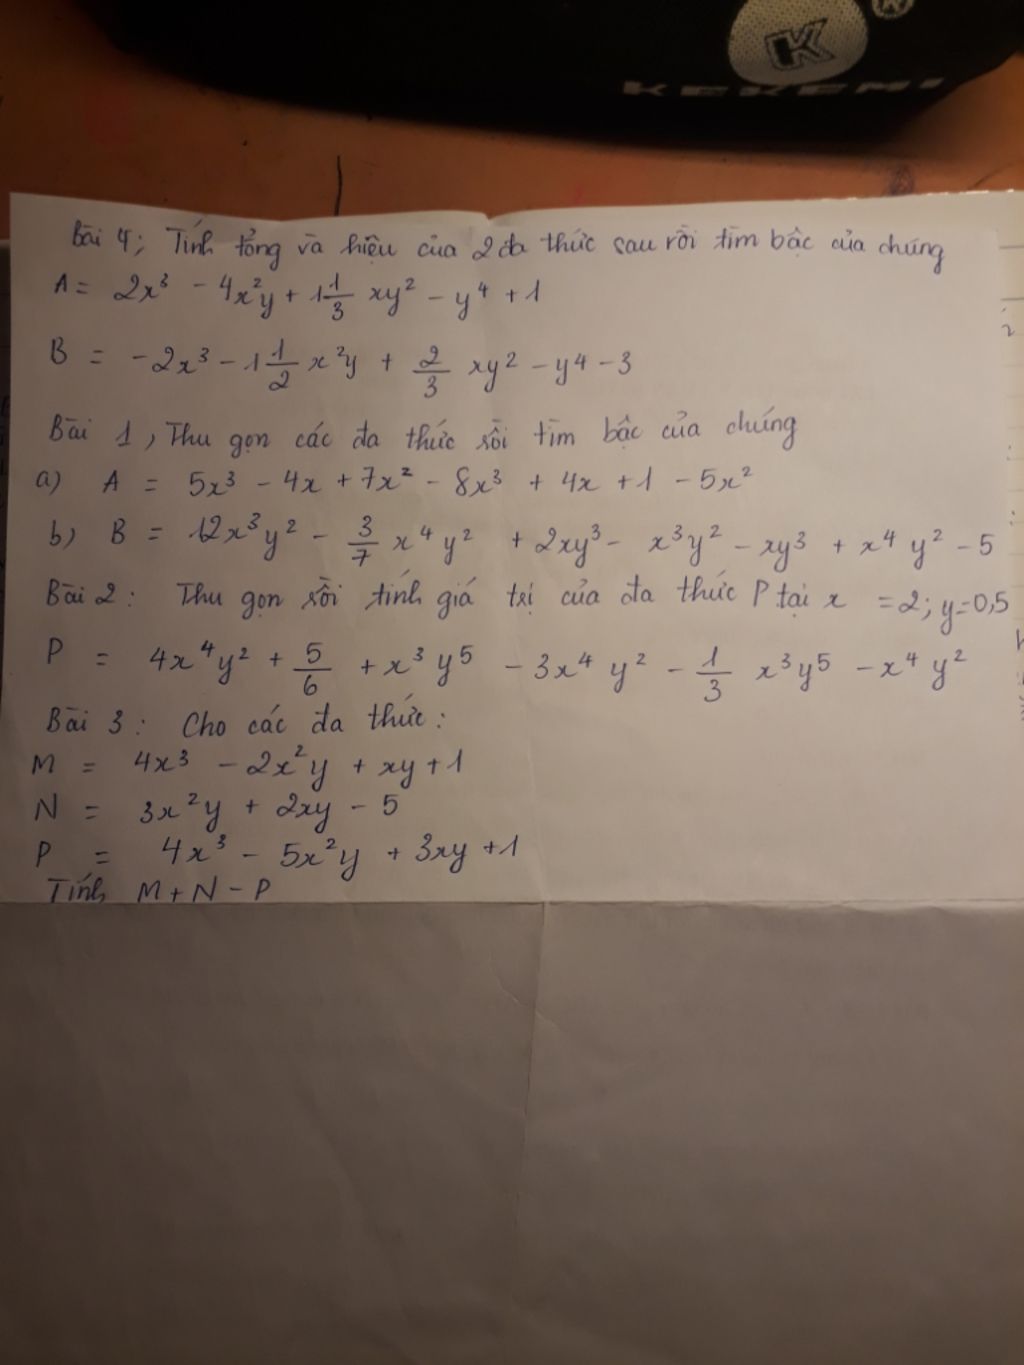 K
®
KEKEMI
Bài 4; Tính tổng và hiệu của 2 đa thức sau rồi tìm bậc của chúng
A = 2x³ - 4x²y + 1 1/3 xy² - y⁴ + 1
B = -2x³ - 1 1/2 x²y + 2/3 xy² - y⁴ - 3
Bài 1, Thu gọn các đa thức rồi tìm bậc của chúng
a) A = 5x³ - 4x + 7x² - 8x³ + 4x + 1 - 5x²
b) B = 12x³y² - 3/7 x⁴y² + 2xy³ - x³y² - xy³ + x⁴y² - 5
Bài 2: Thu gọn rồi tính giá trị của đa thức P tại x = 2; y = 0,5
P = 4x⁴y² + 5/6 + x³y⁵ - 3x⁴y² - 1/3 x³y⁵ - x⁴y²
Bài 3: Cho các đa thức:
M = 4x³ - 2x²y + xy + 1
N = 3x²y + 2xy - 5
P = 4x³ - 5x²y + 3xy + 1
Tính M + N - P